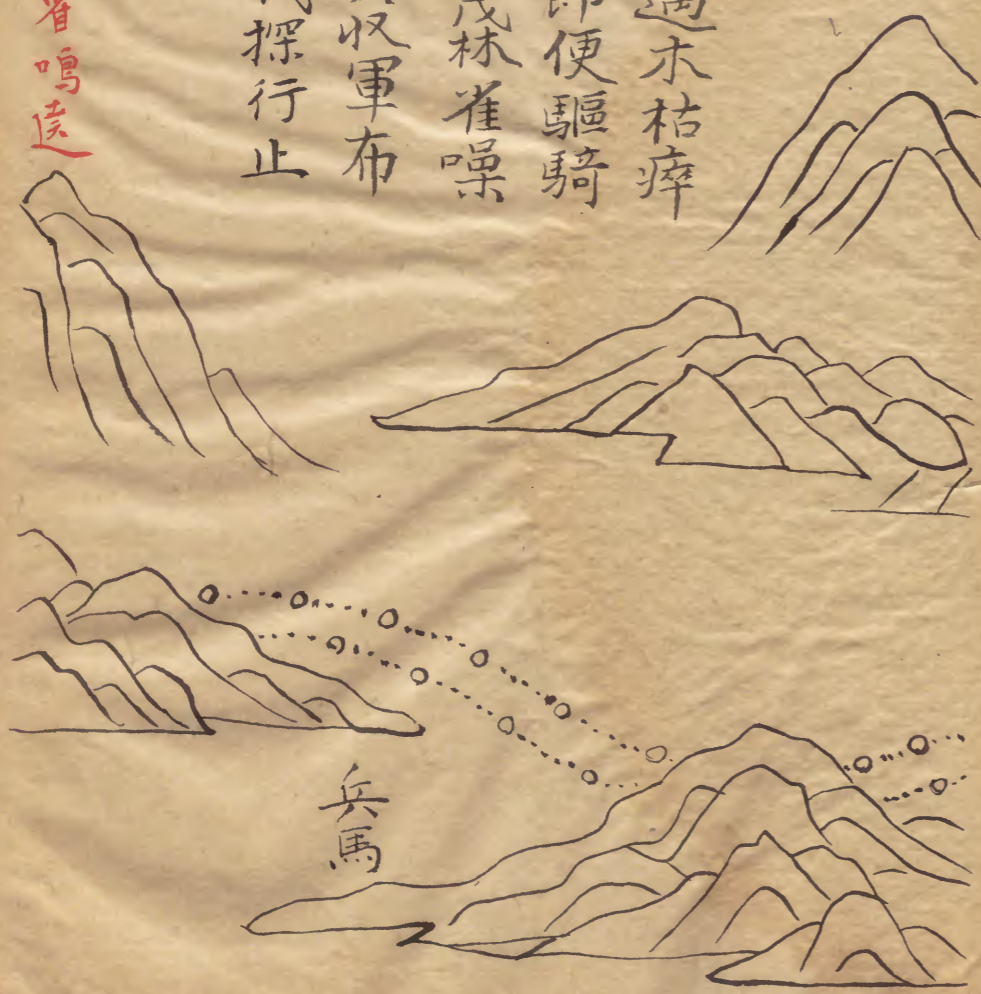 過木枯瘁
即便驅騎
茂林雀噪
收軍布
探行止
鳴逵
兵馬